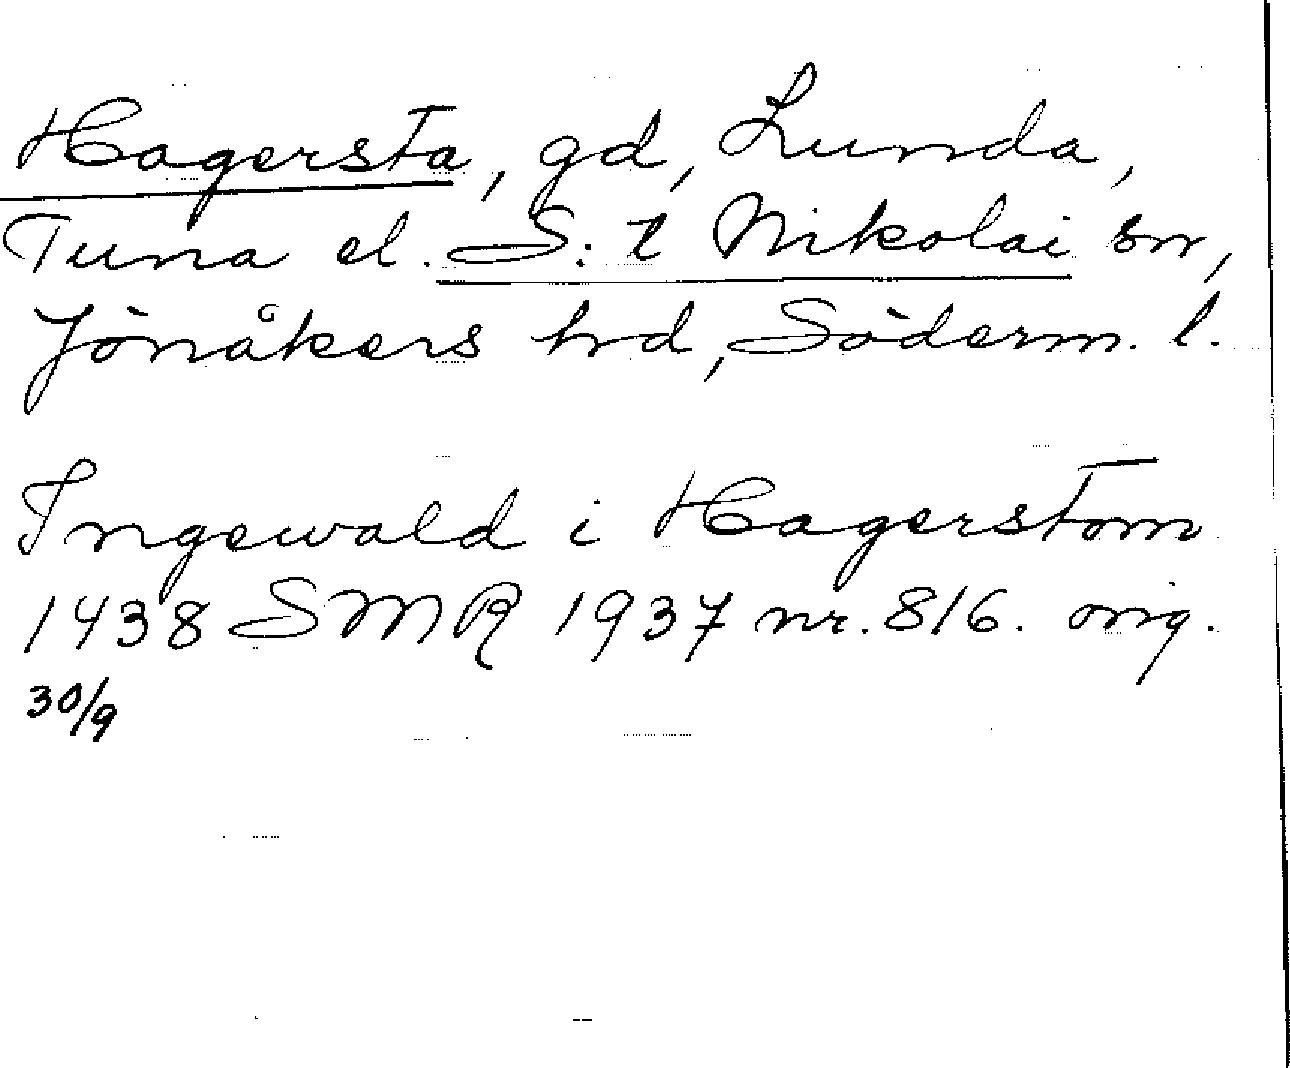 Hagersta, gd, Lunda,
Tuna el. S:t Nikolai sn,
Jönåkers hd, Söderm. l.
Ingewald i Hagerstom
1438 SMR 1937 nr. 816. orig.
30/9